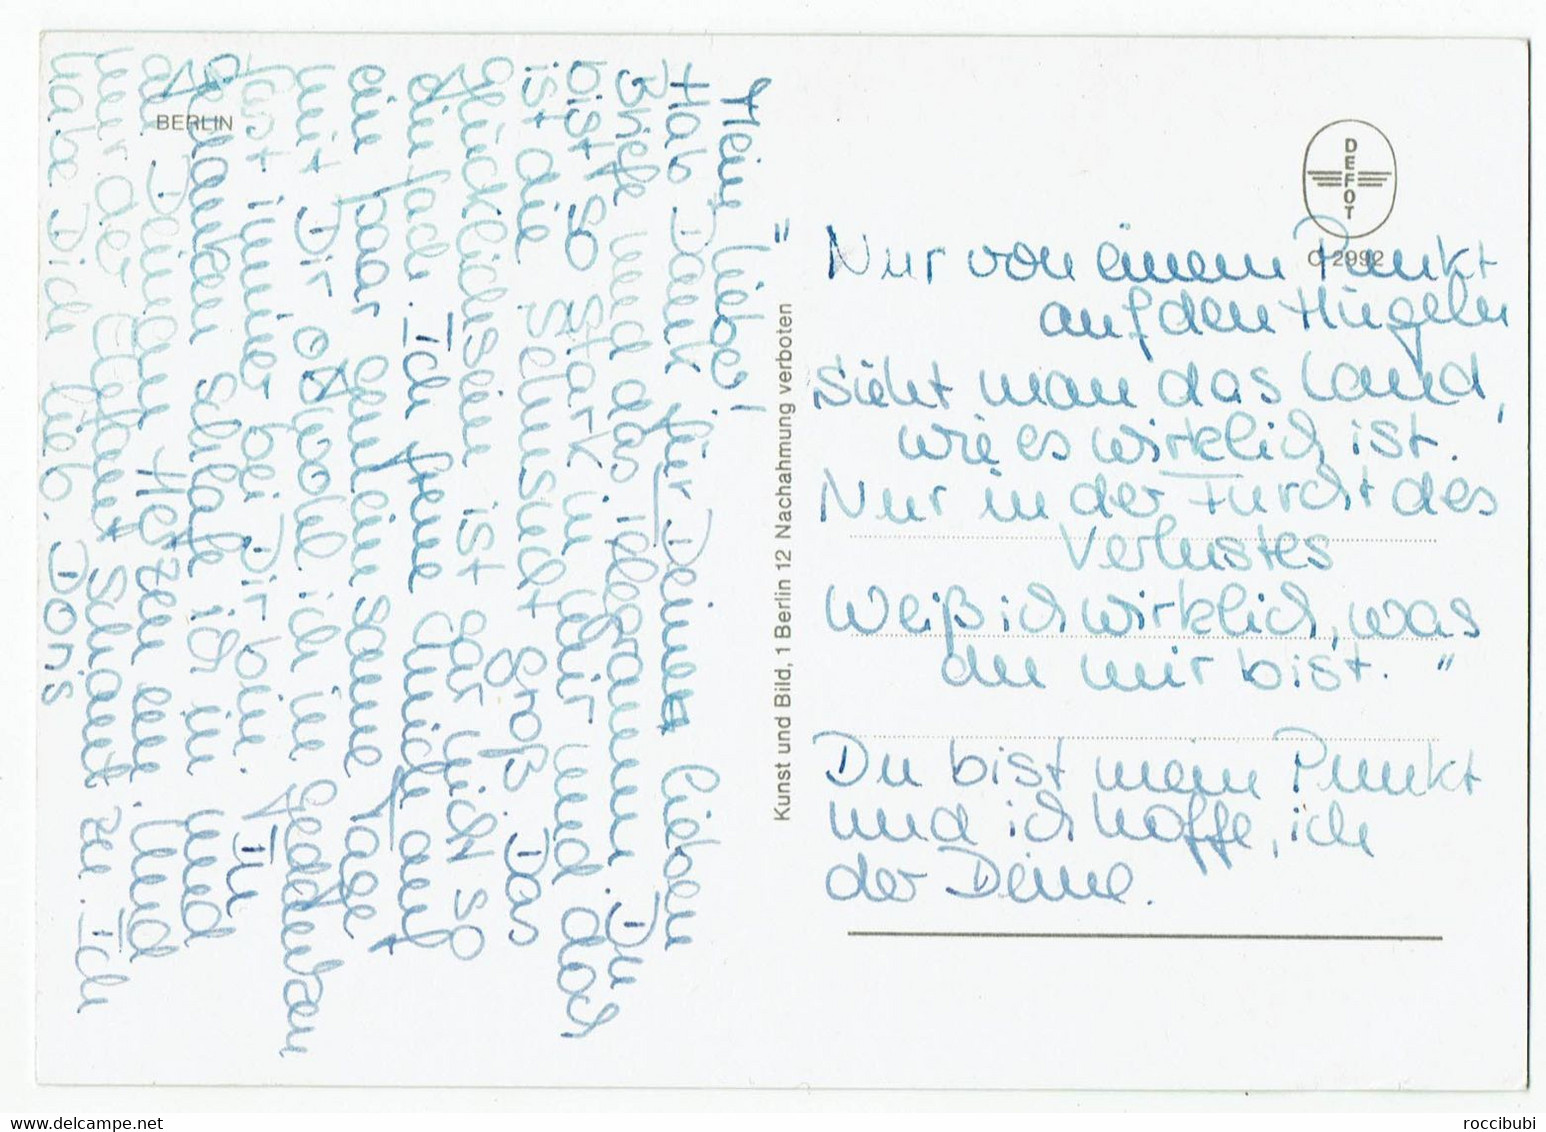 BERLIN
Mein Lieber!
Hab Dank für Deinen lieben
Brief und das Telegramm. Du
bist so stark in mir und doch
ist die Sehnsucht groß. Das
Glücklichsein ist gar nicht so
einfach. Ich freue mich auf
ein paar gemeinsame Tage
mit Dir obwohl ich in Gedanken
fast immer bei Dir bin. In
Gedanken schlafe ich in und
an Deinem Herzen ein. Und
nur der Elefant schaut zu. Ich
habe Dich lieb. Doris
Kunst und Bild, 1 Berlin 12 Nachahmung verboten
DEFOT
C 2992
"Nur von einem Punkt
auf den Hügeln
Sieht man das Land,
wie es wirklich ist.
Nur in der Furcht des
Verlustes
Weiß ich wirklich, was
du mir bist."
Du bist mein Punkt
und ich hoffe, ich
der Deine.
www.delcampe.net
roccibubi